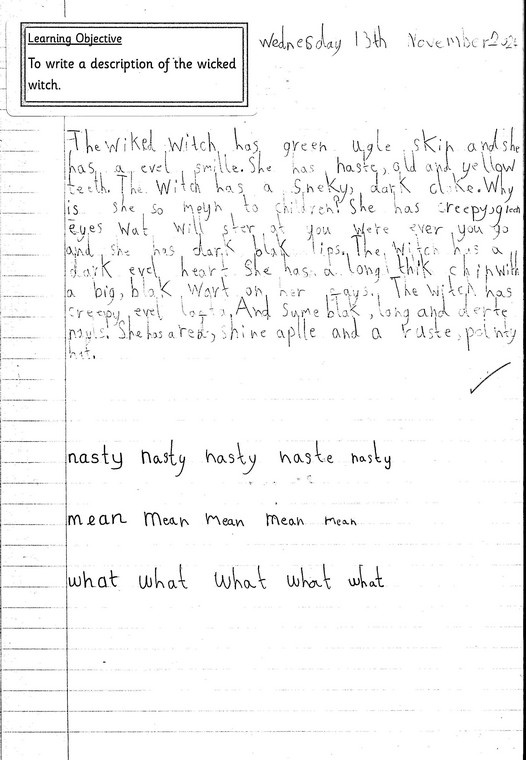 Learning Objective
To write a description of the wicked
witch.
Wednesday 13th November
The Wiked Witch has green ugle skin and she
has a evel smille. She has haste, old and yellow
teeth. The Witch has a sneky, dark cloke. Why
is she so meyn to children? She has creepy,
eyes wat will ster at you were ever you go
and she has dark blak lips. The Witch has a
dark evel heart. She has a long thik chin with
a big, blak wart on her. The Witch has
creepy evel. And Syme blak, long and derte
nayls. She has a red, shine aplle and a ruste, pointy
hat.
nasty nasty nasty naste nasty
mean mean mean mean mean
what what what what what